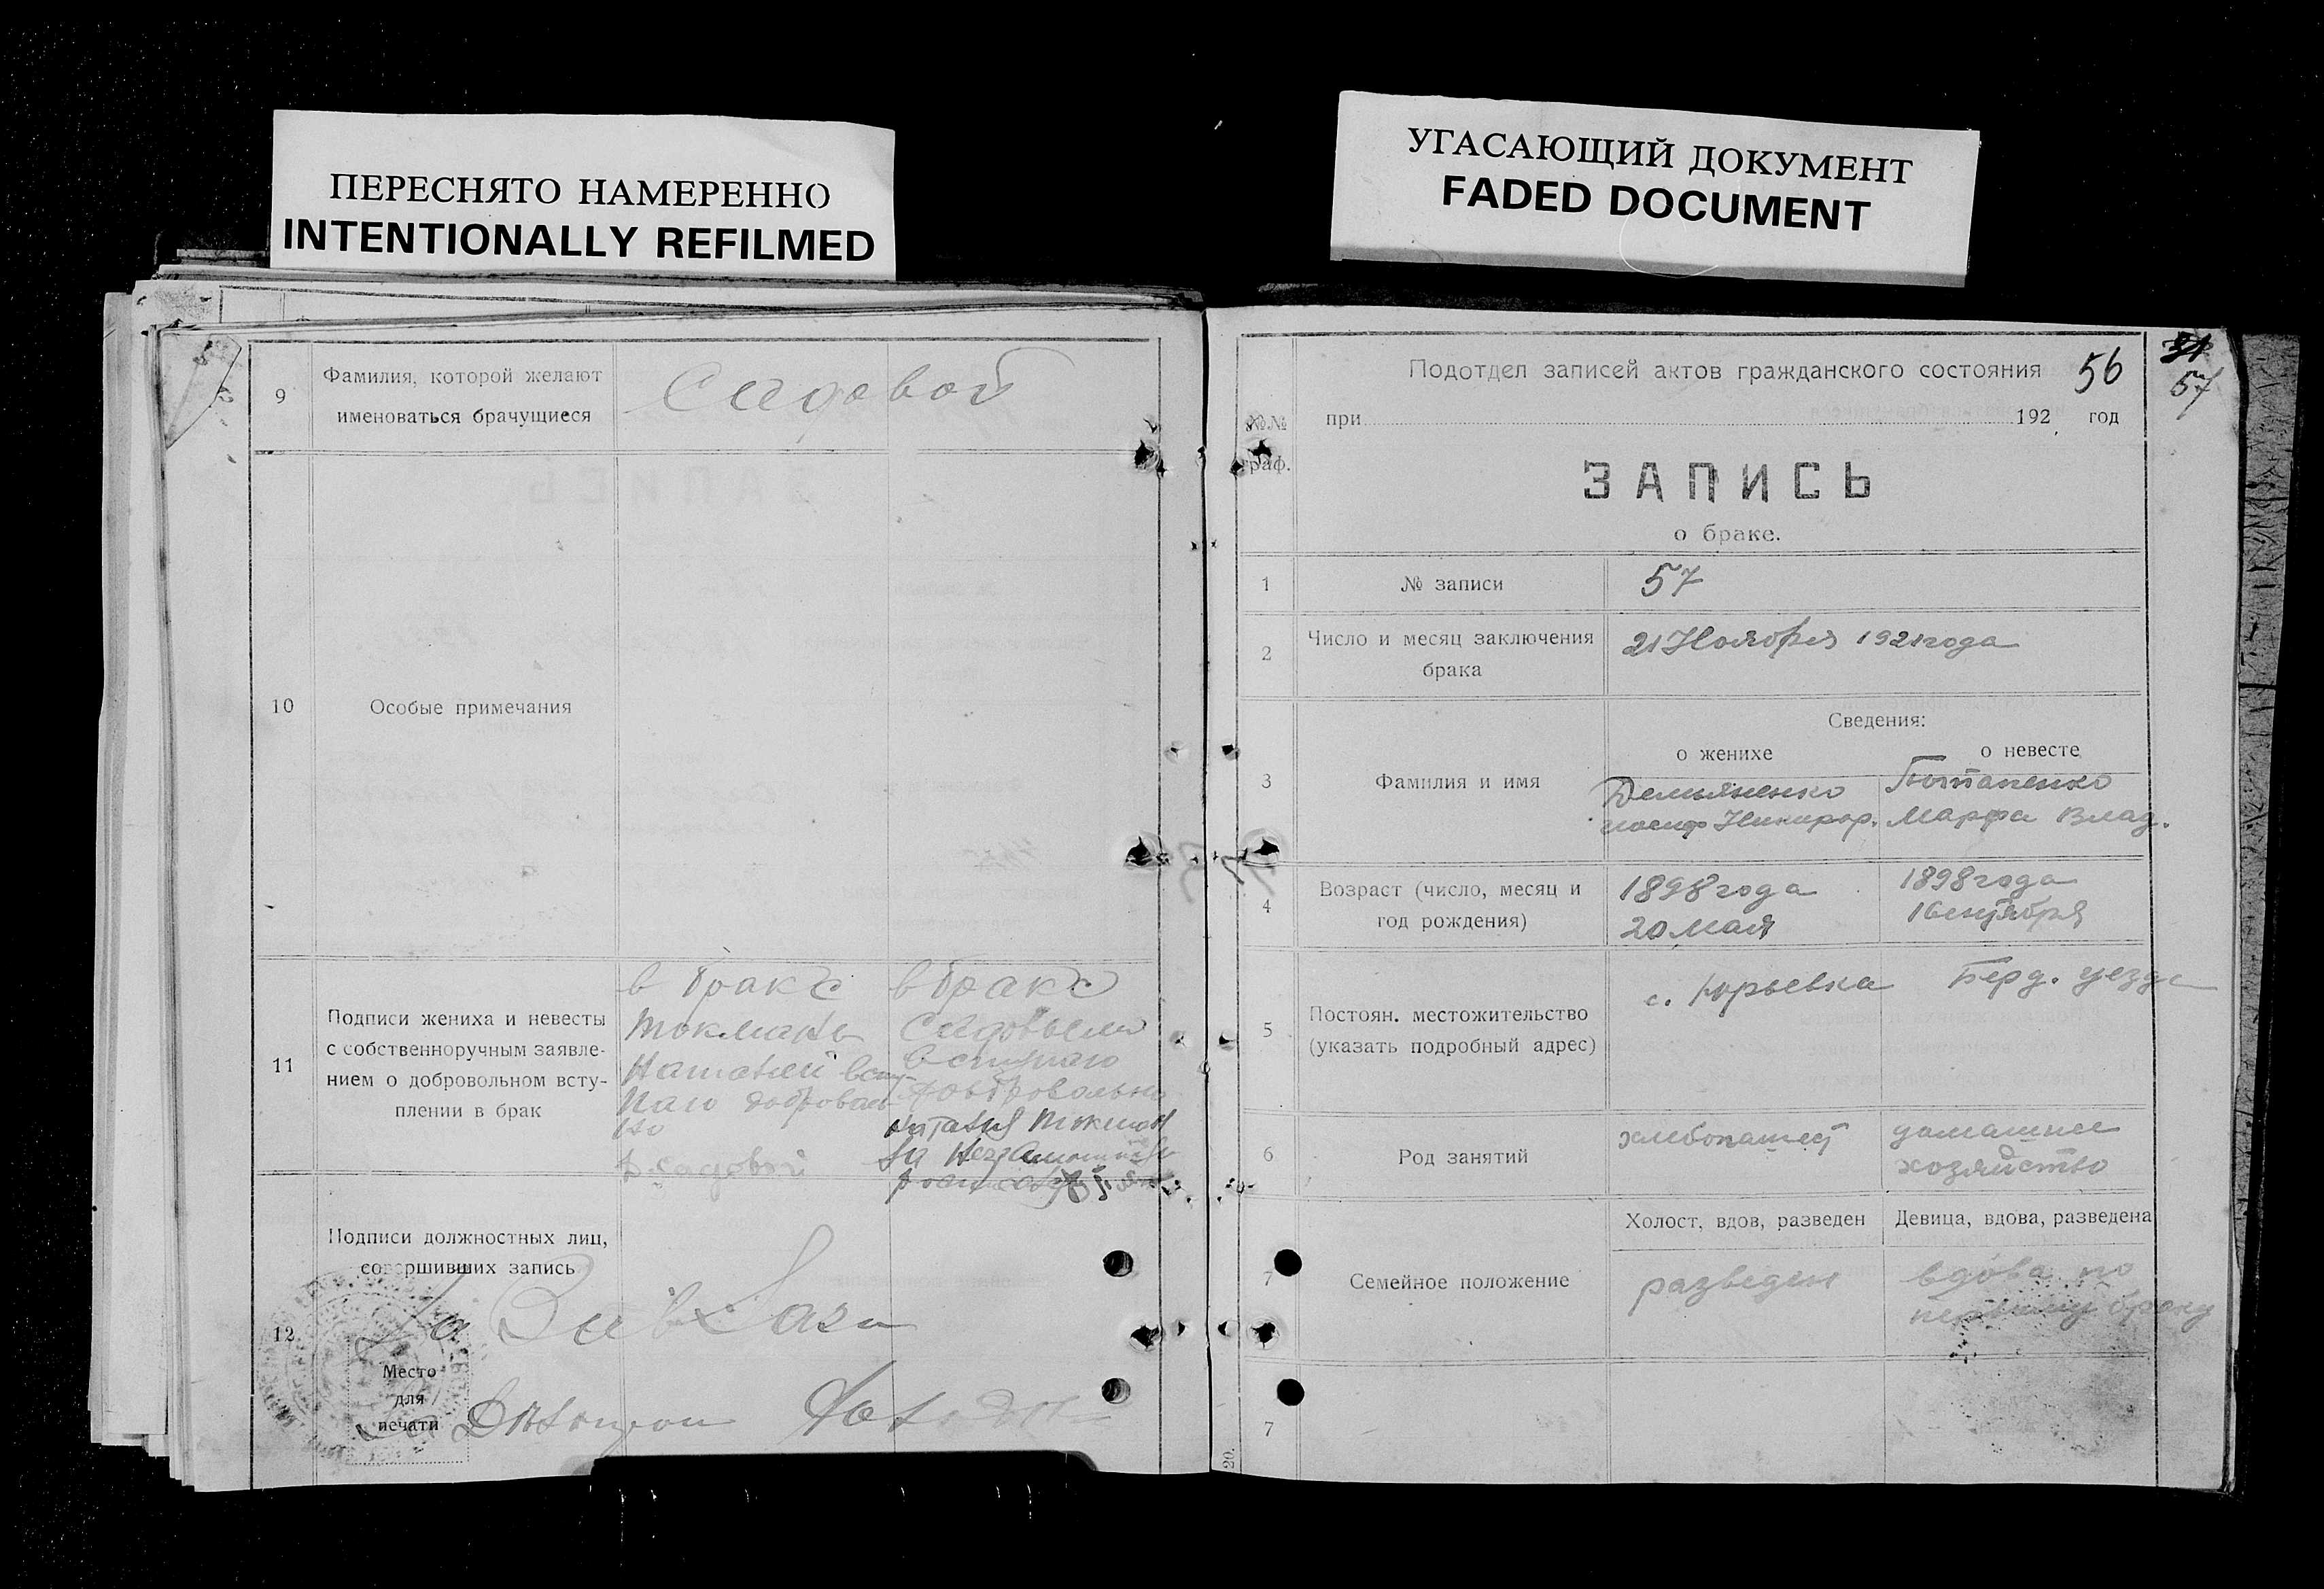 ПЕРЕСНЯТО НАМЕРЕННО
INTENTIONALLY REFILMED
УГАСАЮЩИЙ ДОКУМЕНТ
FADED DOCUMENT
9
Фамилия, которой желают
именоваться брачущиеся
Садовой
10
Особые примечания
11
Подписи жениха и невесты
с собственноручным заявле-
нием о добровольном всту-
плении в брак
в брак с
Токмань
Наталей всту-
паю добровол
но
Садовой
в брак с
Садовым
вступаю
добровольно
Наталья Токман
за
12
Подписи должностных лиц,
совершивших запись
За Зав
Место
для
печати
57
56
Подотдел записей актов гражданского состояния
№№
граф.
при 192 год
ЗАПИСЬ
о браке.
1
№ записи
57
2
Число и месяц заключения
брака
21 Ноября 1921 года
Сведения:
3
Фамилия и имя
о женихе
Демьяненко
Иосиф Никифор.
о невесте
Потапенко
Марфа Влад.
4
Возраст (число, месяц и
год рождения)
1898 года
20 мая
1898 года
1 сентября
5
Постоян. местожительство
(указать подробный адрес)
с. Юрьевка Берд. уезда
6
Род занятий
хлебопашец
домашнее
хозяйство
7
Семейное положение
Холост, вдов, разведен
разведен
Девица, вдова, разведена
вдова по
первому браку
7
20.